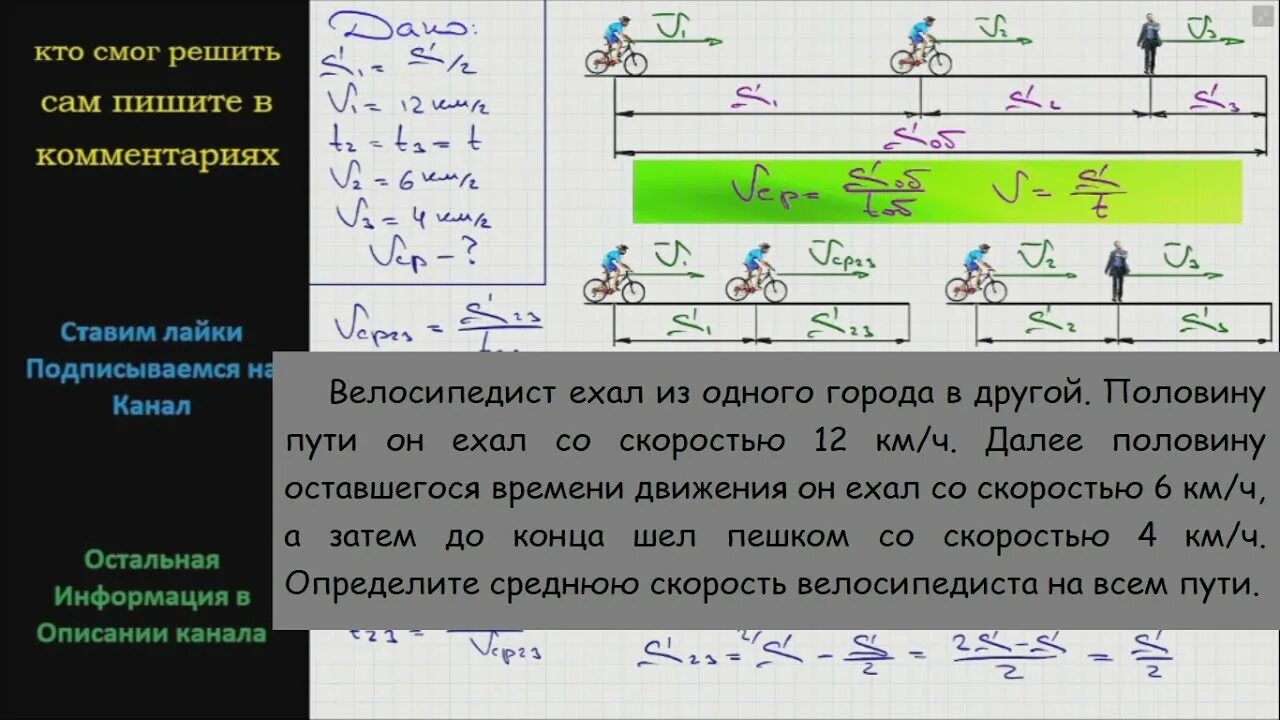 кто смог решить
сам пишите в
комментариях
Ставим лайки
Подписываемся на
Канал
Остальная
Информация в
Описании канала
Дано:
S₁ = S/2
V₁ = 12 км/ч
t₂ = t₃ = t
V₂ = 6 км/ч
V₃ = 4 км/ч
Vср - ?
Vср23 = S23
V₁ V₂ V₃
S₁ S₂ S₃
Sоб
Vср = Sоб/tоб V = S/t
V₁ Vср23 V₂ V₃
S₁ S23 S₂ S₃
Велосипедист ехал из одного города в другой. Половину
пути он ехал со скоростью 12 км/ч. Далее половину
оставшегося времени движения он ехал со скоростью 6 км/ч,
а затем до конца шел пешком со скоростью 4 км/ч.
Определите среднюю скорость велосипедиста на всем пути.
t23 = Vср23
S23 = S - S/2 = 2S - S/2 = S/2